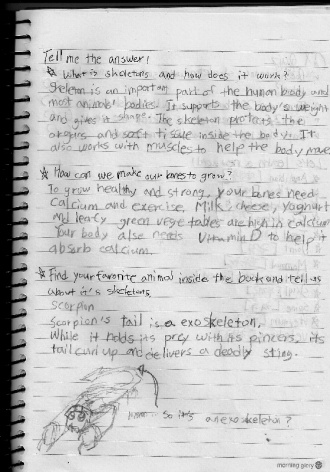 Tell me the answer!
☆ What is skeletons and how does it work?
Skeleton is an important part of the human body and
most animals' bodies. It supports the body's weight
and gives it shape. The skeleton protects the
organs and soft tissue inside the body. It
also works with muscles to help the body move
☆ How can we make our bones to grow?
To grow healthy and strong, your bones need
Calcium and exercise. Milk, cheese, yoghurt
and leafy green vegetables are high in calcium
Your body also needs Vitamin D to help it
absorb calcium.
☆ Find your favorite animal inside the book and tell us
about it's skeletons
Scorpion
Scorpion's tail is a exoskeleton.
While it holds its prey with its pincers, its
tail curl up and delivers a deadly sting.
so it's an exoskeleton?
morning glory